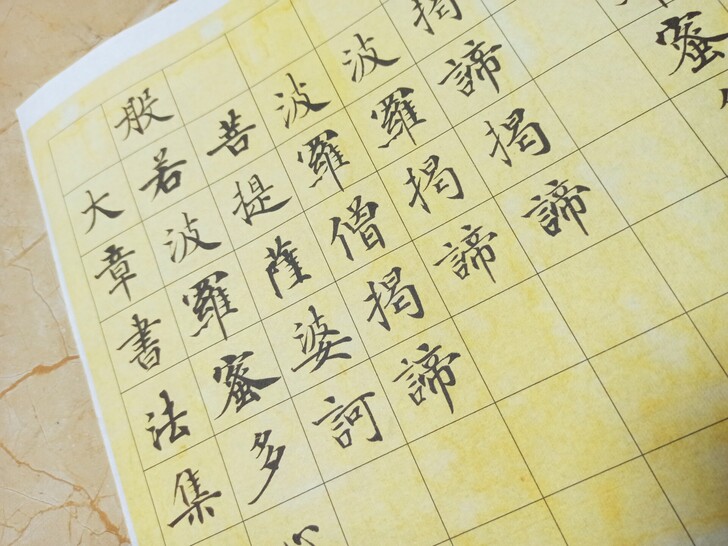 蜜
揭諦揭諦
波羅揭諦
波羅僧揭諦
菩提薩婆訶
般若波羅蜜多
大章書法集